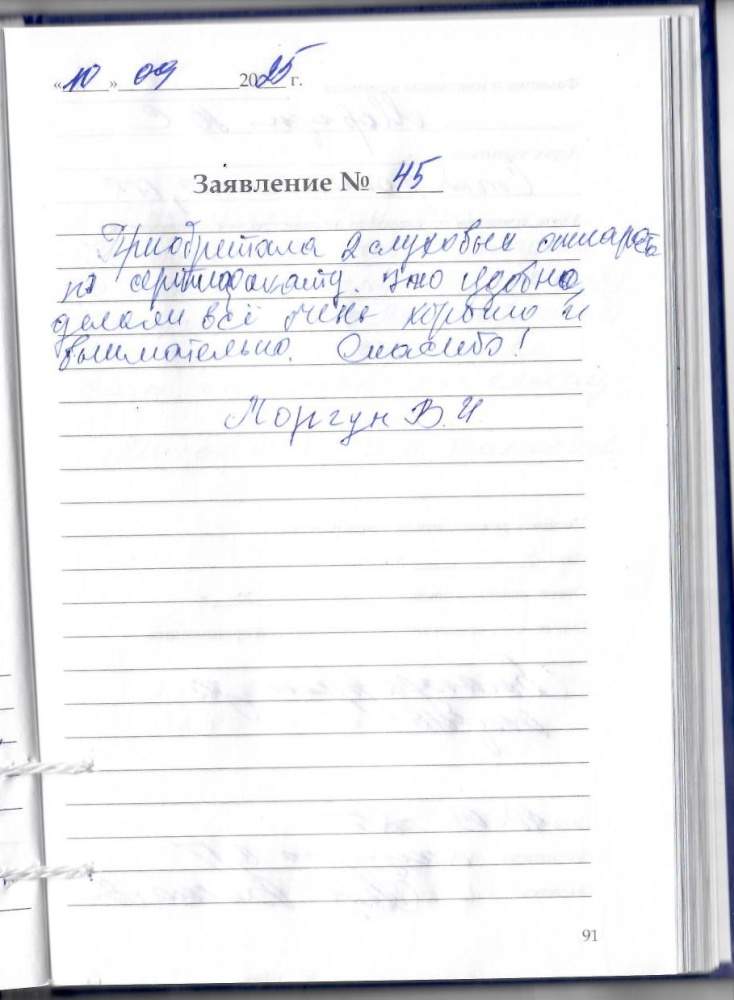 «10» 09 2025 г.
Заявление № 45
Приобретала 2 слуховых аппарата
по сертификату. Это удобно
делали всё очень хорошо и
внимательно. Спасибо!
Моргун В.И
91